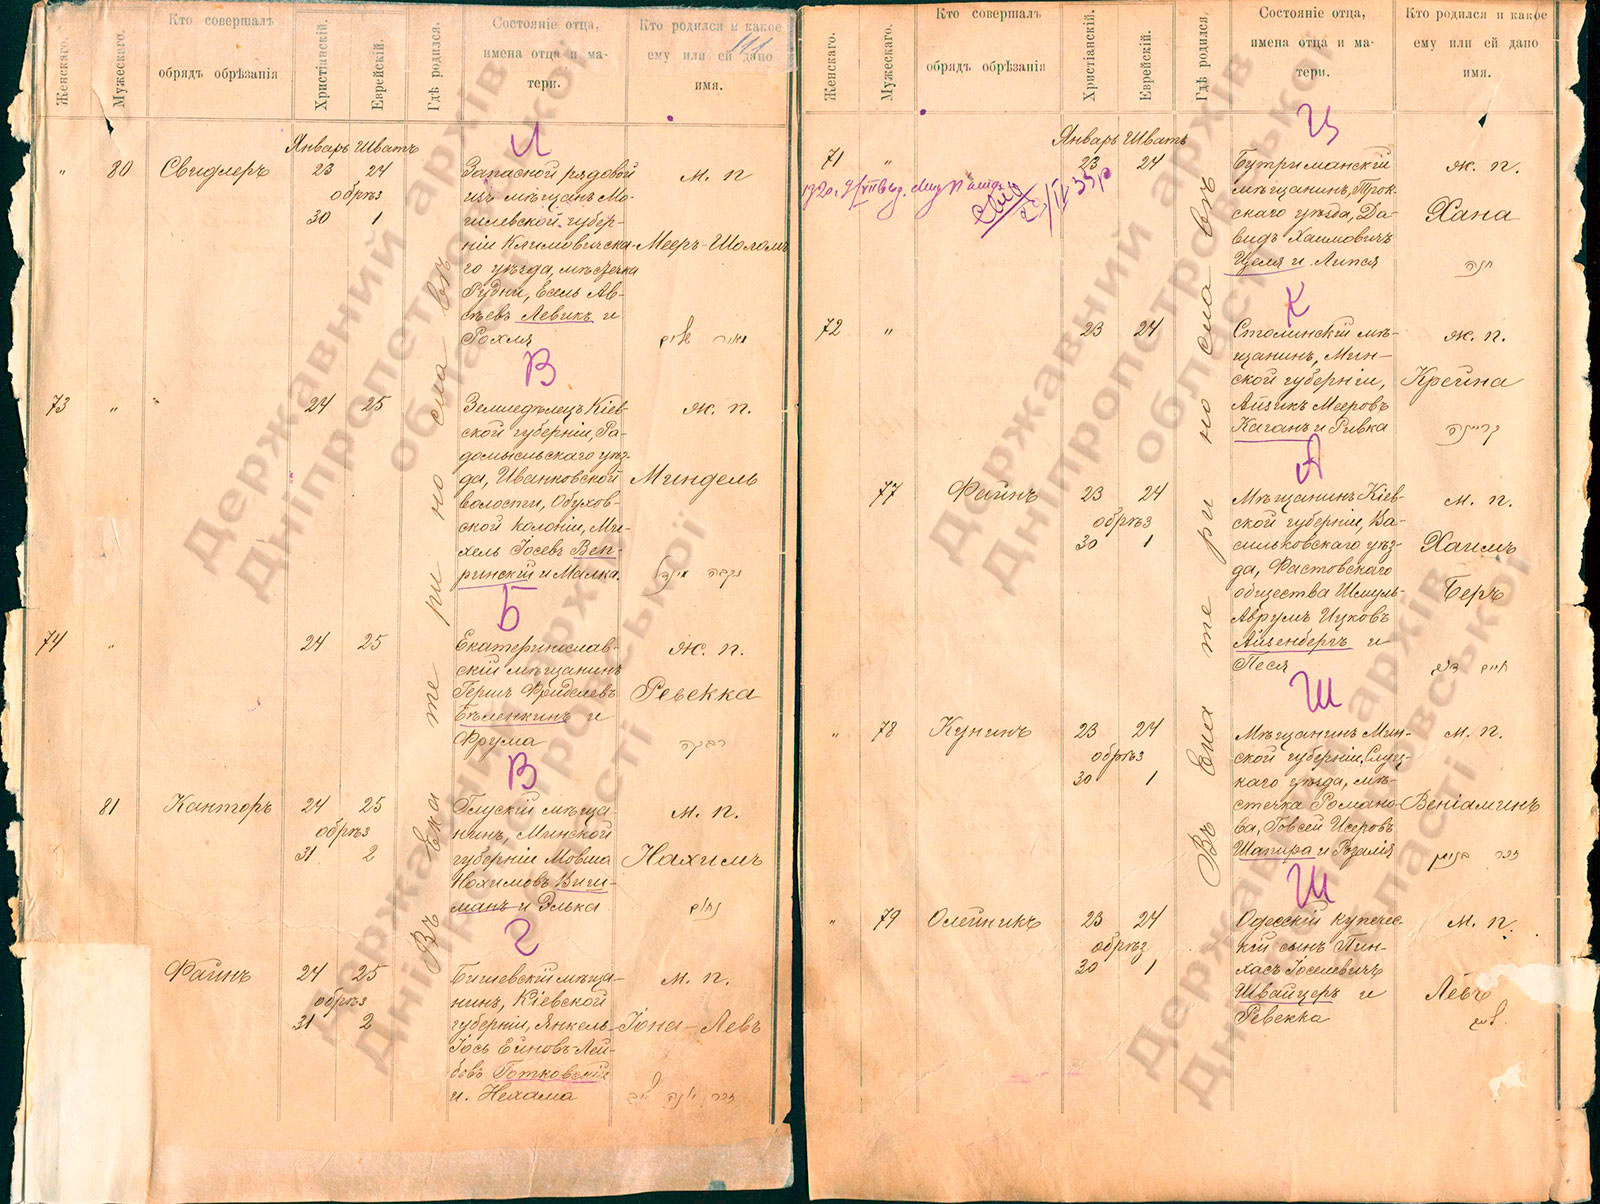 Женскаго.
Мужескаго.
Кто совершалъ
обрядъ обрѣзанія
Христіанскій.
Еврейскій.
Гдѣ родился.
Состояніе отца,
имена отца и ма-
тери.
Кто родился и какое
ему или ей дано
имя.
Январь Шватъ
Л
" 80 Свидлеръ 23 24
обрѣз
30 1
Запасной рядовой
изъ мѣщанъ Мо-
гилевской губер-
ніи Климовичска-
го уѣзда, мѣстечка
Рудни, Есель Ав-
сѣевъ Левикъ и
Рохля
м. п
Мееръ-Шоломъ
В
73 " 24 25
Земледѣлецъ Кіев-
ской губерніи, Ра-
домысльскаго уѣз-
да, Иванковской
волости, Обухов-
ской колоніи, Ми-
хель Іосевъ Веп-
ринскій и Малка.
ж. п.
Миндель
Б
74 " 24 25
Екатеринослав-
скій мѣщанинъ
Герш Фройделевъ
Бѣленкинъ и
Фрума
ж. п.
Ревекка
רבקה
В
81 Канторъ 24 25
обрѣз
31 2
Глускій мѣща-
нинъ, Минской
губерніи Мовша
Нохимовъ Виш-
манъ и Элька
м. п.
Нахимъ
נחום
Г
Файнъ 24 25
обрѣз
31 2
Бишевскій мѣща-
нинъ, Кіевской
губерніи, Янкель-
Іось Ейновъ-Лей-
бовъ Готковскій
и Нехама
м. п.
Іона-Левъ
Въ Екатеринославѣ
Женскаго.
Мужескаго.
Кто совершалъ
обрядъ обрѣзанія
Христіанскій.
Еврейскій.
Гдѣ родился.
Состояніе отца,
имена отца и ма-
тери.
Кто родился и какое
ему или ей дано
имя.
Январь Шватъ
Ц
71 " 23 24
Бутриманскій
мѣщанинъ, Трок-
скаго уѣзда, Да-
видъ Хаимовичъ
Целя и Липся
ж. п.
Хана
חנה
К
72 " 23 24
Столинскій мѣ-
щанинъ, Мин-
ской губерніи,
Айзикъ Мееровъ
Каганъ и Ривка
ж. п.
Крейна
קריינה
А
77 Файнъ 23 24
обрѣз
30 1
Мѣщанинъ Кіев-
ской губерніи, Ва-
сильковскаго уѣз-
да, Фастовскаго
общества Шмуль-
Аврумъ Ицковъ
Айзенбергъ и
Песя
м. п.
Хаимъ
Беръ
Ш
" 78 Кунинъ 23 24
обрѣз
30 1
Мѣщанинъ Мин-
ской губерніи, Слуц-
каго уѣзда, мѣ-
стечка Романо-
ва, Говсей Исеровъ
Шапира и Розалія
м. п.
Веніаминъ
Ш
" 79 Олейникъ 23 24
обрѣз
30 1
Одесскій купечес-
кій сынъ Пин-
хасъ Іоселевичъ
Швайцеръ и
Ревекка
м. п.
Левъ
Въ Екатеринославѣ
Державний архів
Дніпропетровської
області